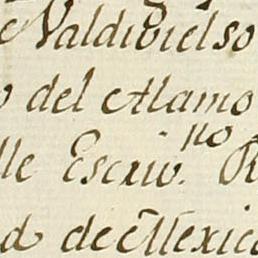 Valdivielso
del Alamo
lle Escriv.no R
d de Mexico